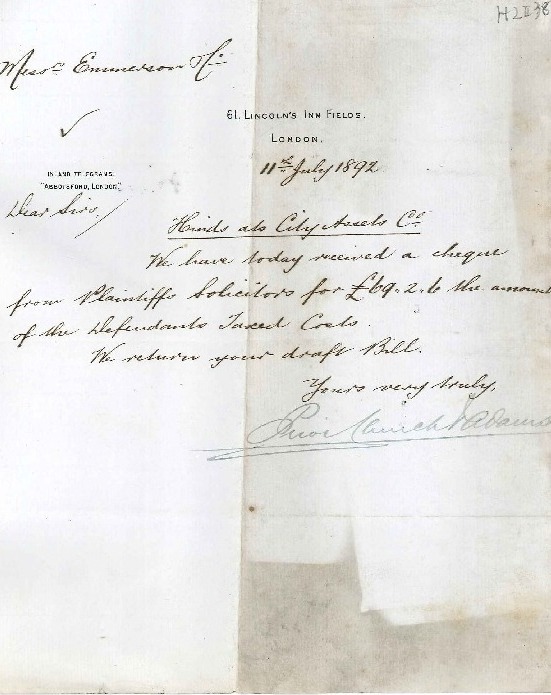 H2II38
Messrs Emmerson & Co
61, LINCOLN'S INN FIELDS,
LONDON.
11th July 1892
INLAND TELEGRAMS.
"ABBOTSFORD, LONDON"
Dear Sirs,
Hinds ats City Assets Co.
We have today received a cheque
from Plaintiffs Solicitors for £69.2.6 the amount
of the Defendants Taxed Costs.
We return your draft Bill.
Yours very truly,
Church & Adams